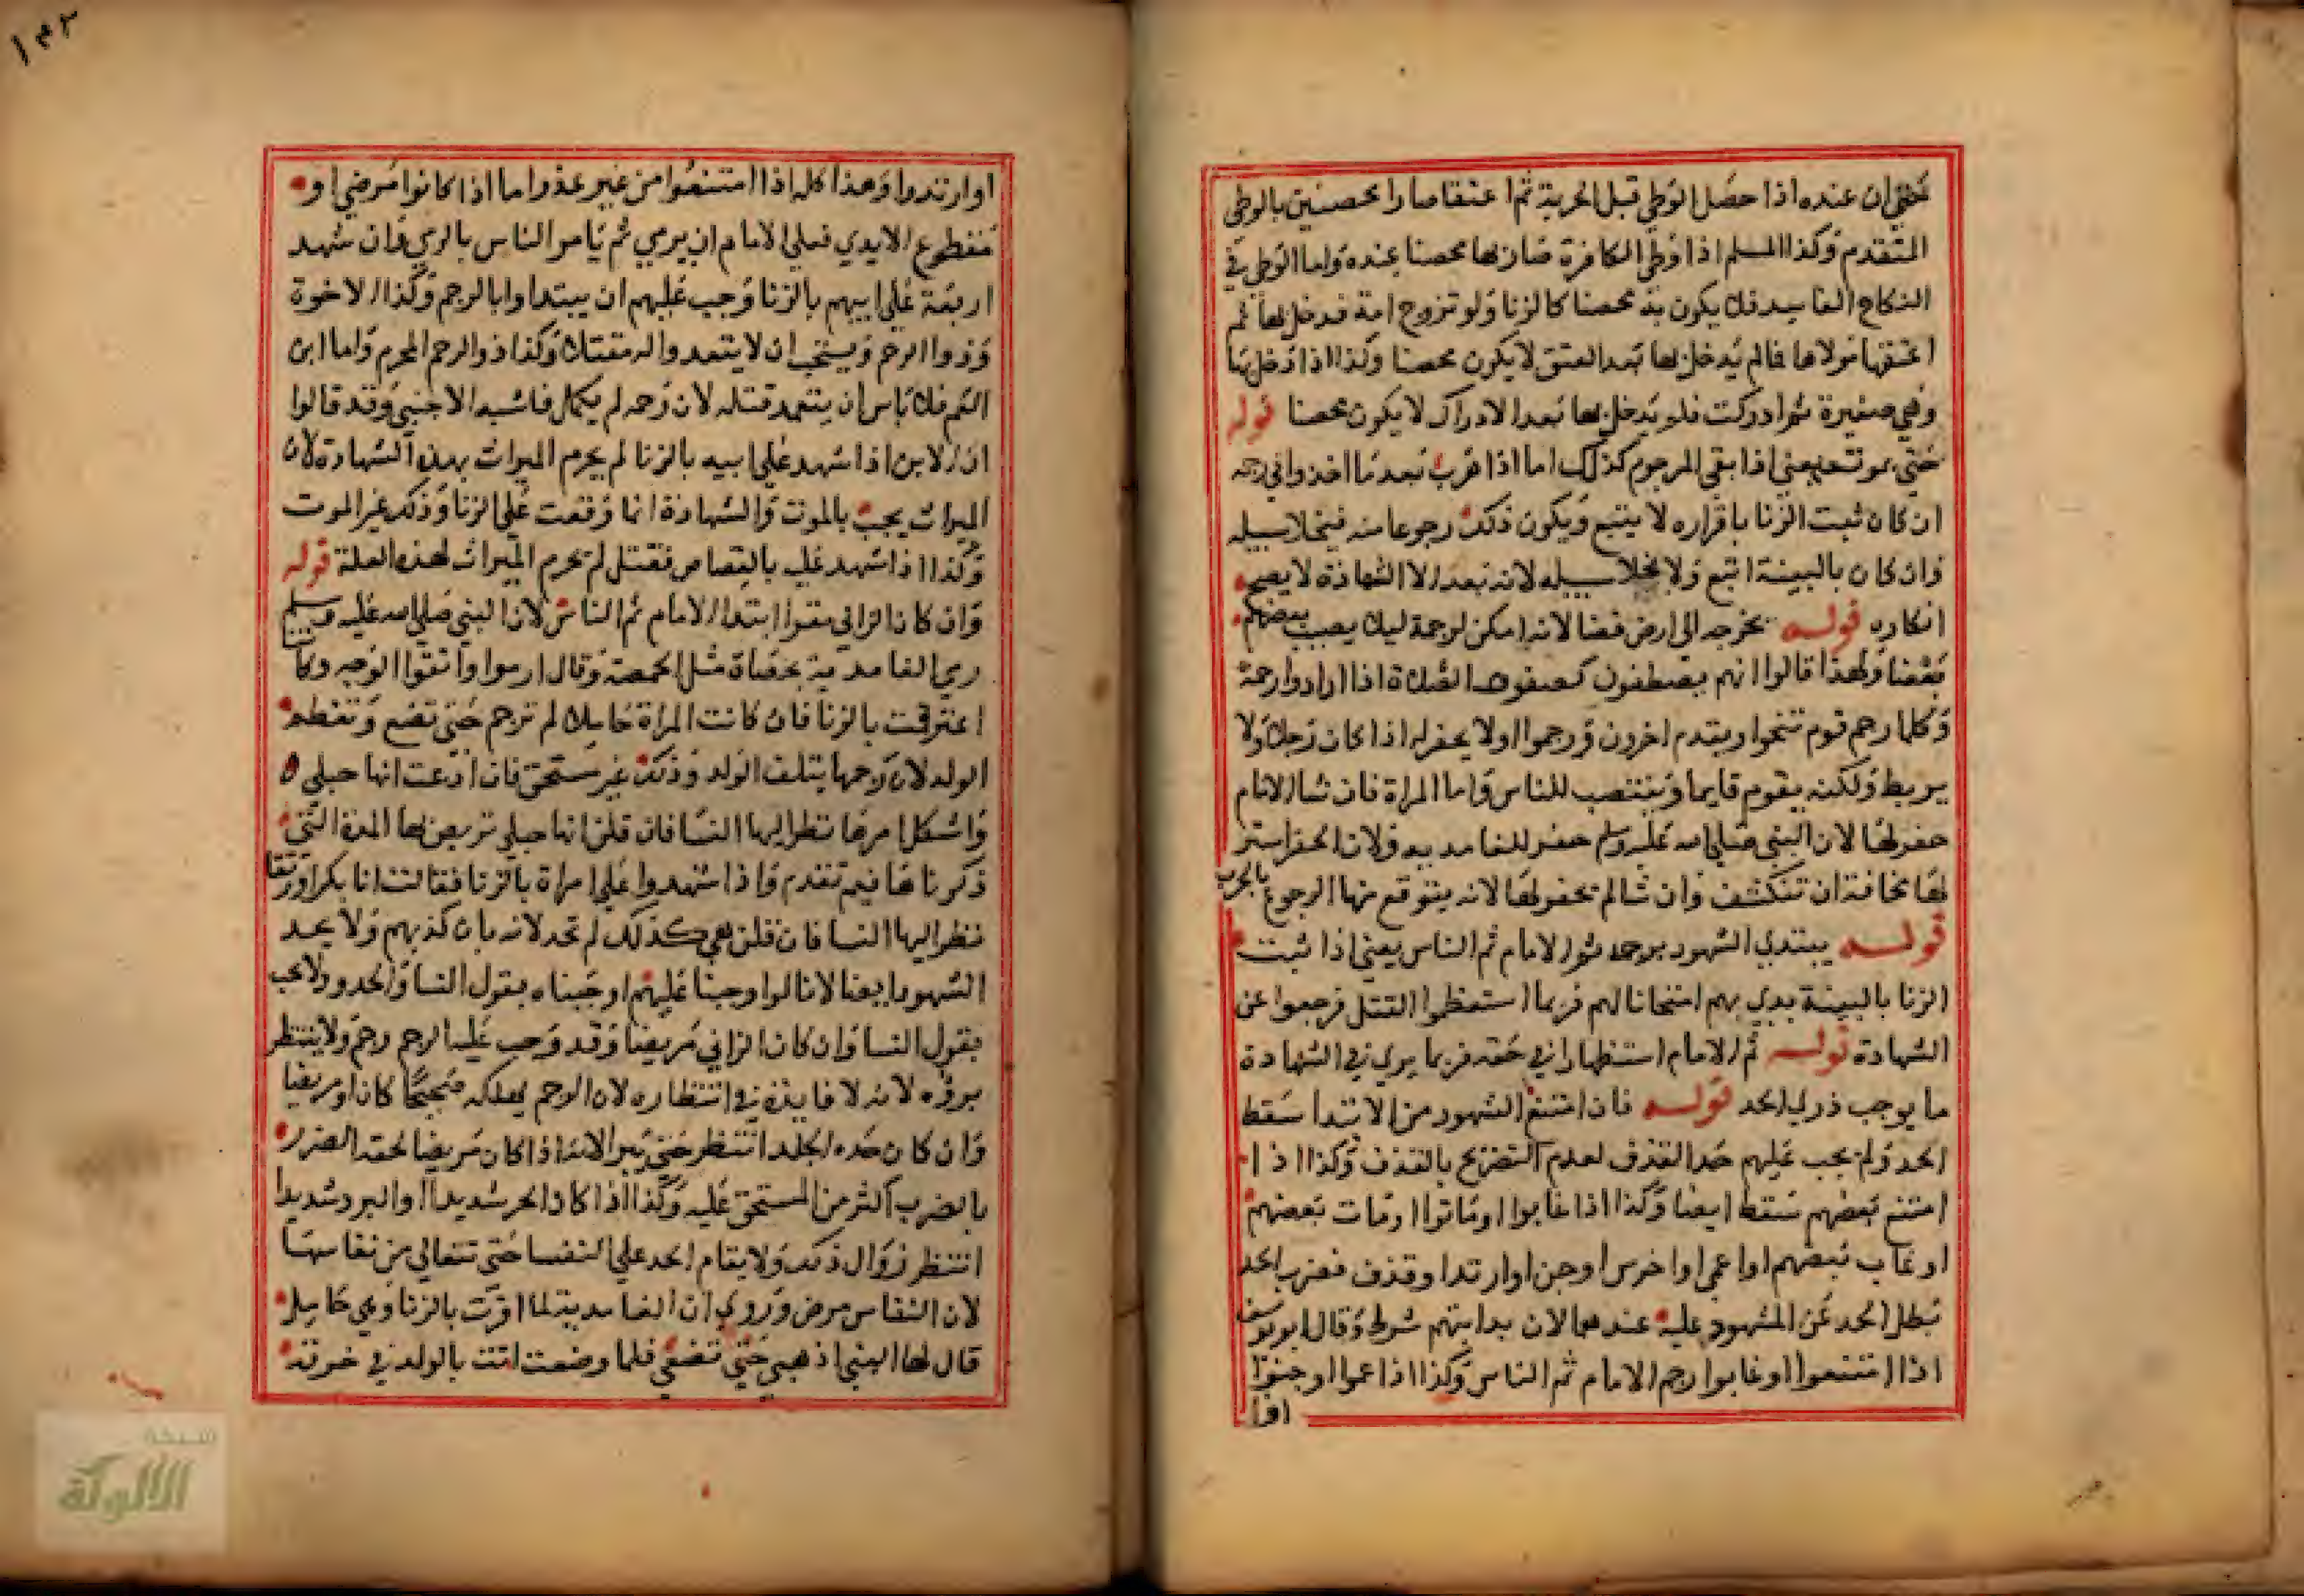 حتى ان عنده اذا حصل الوطي قبل الحرية ثم اعتقا صارا محصنين بالوطي
المتقدم وكذا المسلم اذا وطي الكافرة صار بها محصنا عنده واما الوطي في
النكاح الفاسد فلا يكون به محصنا كالزنا ولو تزوج امة فدخل بها ثم
اعتقها مولاها فما لم يدخل بها بعد العتق لا يكون محصنا وكذا اذا دخل بها
وهي صغيرة ثم ادركت فلو يدخل بها بعد الادراك لا يكون محصنا قوله
حتى يموت يعني اذا بقي المرجوم كذلك اما اذا هرب بعد ما اخذوا في رجمه
ان كان ثبت الزنا باقراره لا يتبع ويكون ذلك رجوعا منه فيخلا سبيله
وان كان بالبينة اتبع ولا يخلا سبيله لانه بعد الشهادة لا يصح
انكاره قوله يخرجه الى ارض فضا لانه امكن لرجمه ليلا يصيب بعضهم
بعضا ولهذا قالوا انهم يصطفون كصفوف الصلاة اذا ارادوا رجمه
وكلما رجم قوم تنحوا ويتقدم اخرون ورجموا ولا يحفر له اذا كان رجلا ولا
يربط ولكنه يقوم قايما وينتصب للناس واما المراة فان شا الامام
حفر لها لان النبي صلى الله عليه وسلم حفر للغامدية ولان الحفر استر
لها مخافة ان تنكشف وان شا لم يحفر لها لانه يتوقع منها الرجوع بالهرب
قوله يبتدي الشهود برجمه ثم الامام ثم الناس يعني اذا ثبت
الزنا بالبينة بدي بهم امتحانا لهم فربما استعظموا القتل فرجعوا عن
الشهادة قوله ثم الامام استظهارا في حقه فربما يرى في الشهادة
ما يوجب درء الحد قوله فان امتنع الشهود من الابتدا سقط
الحد ولم يجب عليهم حد القذف لعدم التصريح بالقذف وكذا اذا
امتنع بعضهم سقط ايضا وكذا اذا غابوا او ماتوا او مات بعضهم
او غاب بعضهم او اعمى او اخرس او جن او ارتد او قذف فضرب الحد
بطل الحد عن المشهود عليه عندهما لان بدايتهم شرط وقال ابو يوسف
اذا امتنعوا او غابوا رجم الامام ثم الناس وكذا اذا عموا او جنوا
او ا
١٣٢
او ارتدوا وهذا كله اذا امتنعوا من غير عذر اما اذا كانوا مرضى او
مقطوع الايدي فعلى الامام ان يرمي ثم يامر الناس بالرمي فان شهد
اربعة على ابيهم بالزنا وجب عليهم ان يبتداوا بالرجم وكذا الاخوة
وذووا الرحم ويستحب ان لا يتعمدوا له مقتلا وكذا ذو الرحم المحرم واما ابن
العم فلا باس ان يتعمد قتله لان رحمه لم يكمل فاشبه الاجنبي وقد قالوا
ان الابن اذا شهد على ابيه بالزنا لم يحرم الميراث بهذه الشهادة لان
الميراث يجب بالموت والشهادة انما وقعت على الزنا وذلك غير الموت
وكذا اذا شهد عليه بالقصاص فقتل لم يحرم الميراث لهذه العلة قوله
وان كان الزاني مقرا ابتدا الامام ثم الناس لان النبي صلى الله عليه وسلم
رمى الغامدية بحصاة مثل الحمصة وقال ارموا واتقوا الوجه وكا
اعترفت بالزنا فان كانت المراة حاملا لم ترجم حتى تضع وتفطم
الولد لان رجمها يتلف الولد وذلك غير مستحق فان ادعت انها حبلى
واشكل امرها نظر اليها النسا فان قلن انها حبلى تربص لها المدة التي
ذكرناها فيم تقدم واذا شهدوا على امراة بالزنا فقالت انا بكر او رتقا
نظر اليها النسا فان قلن هي كذلك لم تحد لانه بان كذبهم ولا يحد
الشهود ايضا لانا لو اوجبنا عليهم اوجبناه بقول النسا والحدود لا تجب
بقول النسا وان كان الزاني مريضا وقد وجب عليه الرجم رجم ولا ينتظر
بروه لانه لا فايدة في انتظاره لان الرجم يهلكه صحيحا كان او مريضا
وان كان حده الجلد انتظر حتى يبرا لانه اذا كان مريضا لحقه الضرر
بالضرب اكثر من المستحق عليه وكذا اذا كان الحر شديدا او البرد شديدا
انتظر زوال ذلك ولا يقام الحد على النفسا حتى تتعالى من نفاسها
لان النفاس مرض وروي ان الغامدية لما اقرت بالزنا وهي حامل
قال لها النبي اذهبي حتى تضعي فلما وضعت اتت بالولد في خرقة
شبكة
الألوكة